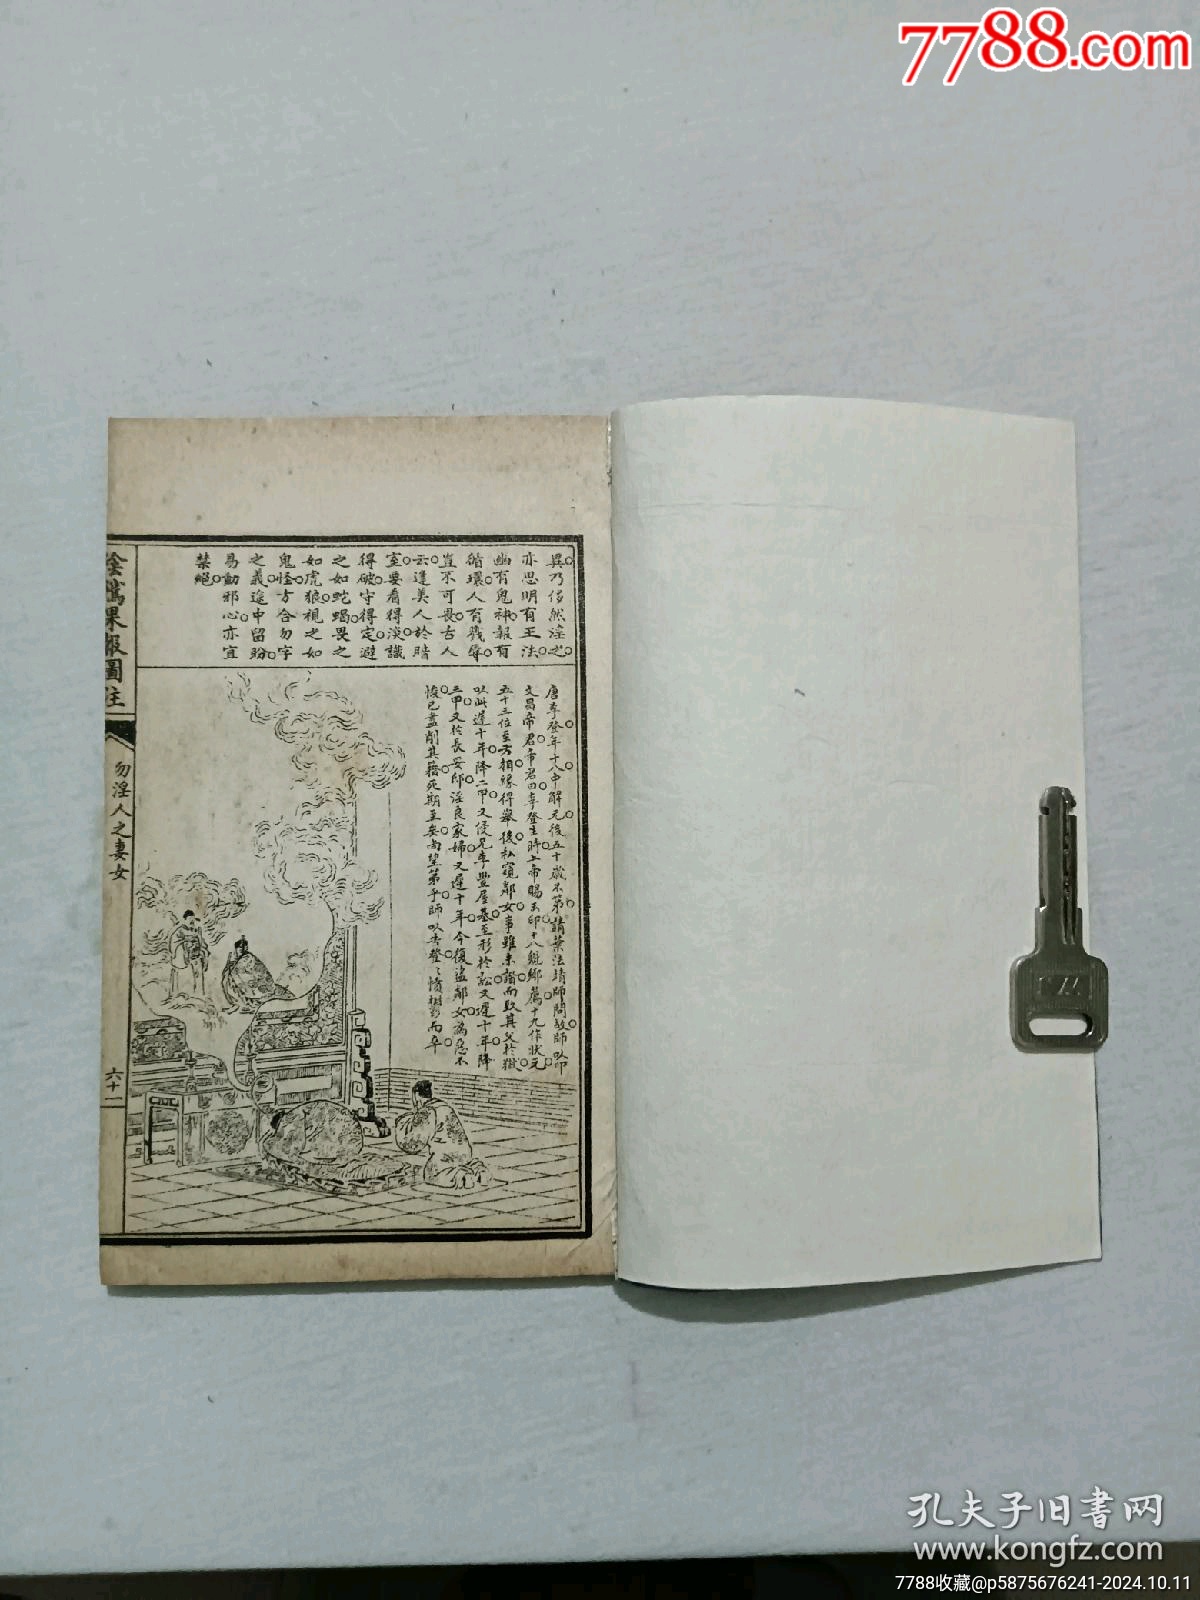 7788.com
異乃侈然淫之
亦思明有王法
幽有鬼神報有
循環人有幾膽
豈不可畏古人
云逢美人於暗
室要看得淡識
得破守得定避
之如蛇蝎畏之
如虎狼視之如
鬼怪方合勿字
之義途中留盼
易動邪心亦宜
禁絕
唐李登年十八中解元後五十歲不第請葉法靖師問故師以叩
文昌帝君帝君曰李登生時上帝賜玉印十八魁鄉薦十九作狀元
五十三位至右相緣得舉後私窺鄰女事雖未諧而致其父於獄
以此遲十年降二甲又侵兄李豐屋基至形於訟又遲十年降
三甲又於長安邸淫良家婦又遲十年今復盜鄰女為惡不
悛已盡削其籍死期至矣尚望第乎師以告登登憤慚而卒
陰騭果報圖註
勿淫人之妻女
六十一
孔夫子旧书网
www.kongfz.com
7788收藏@p5875676241-2024.10.11